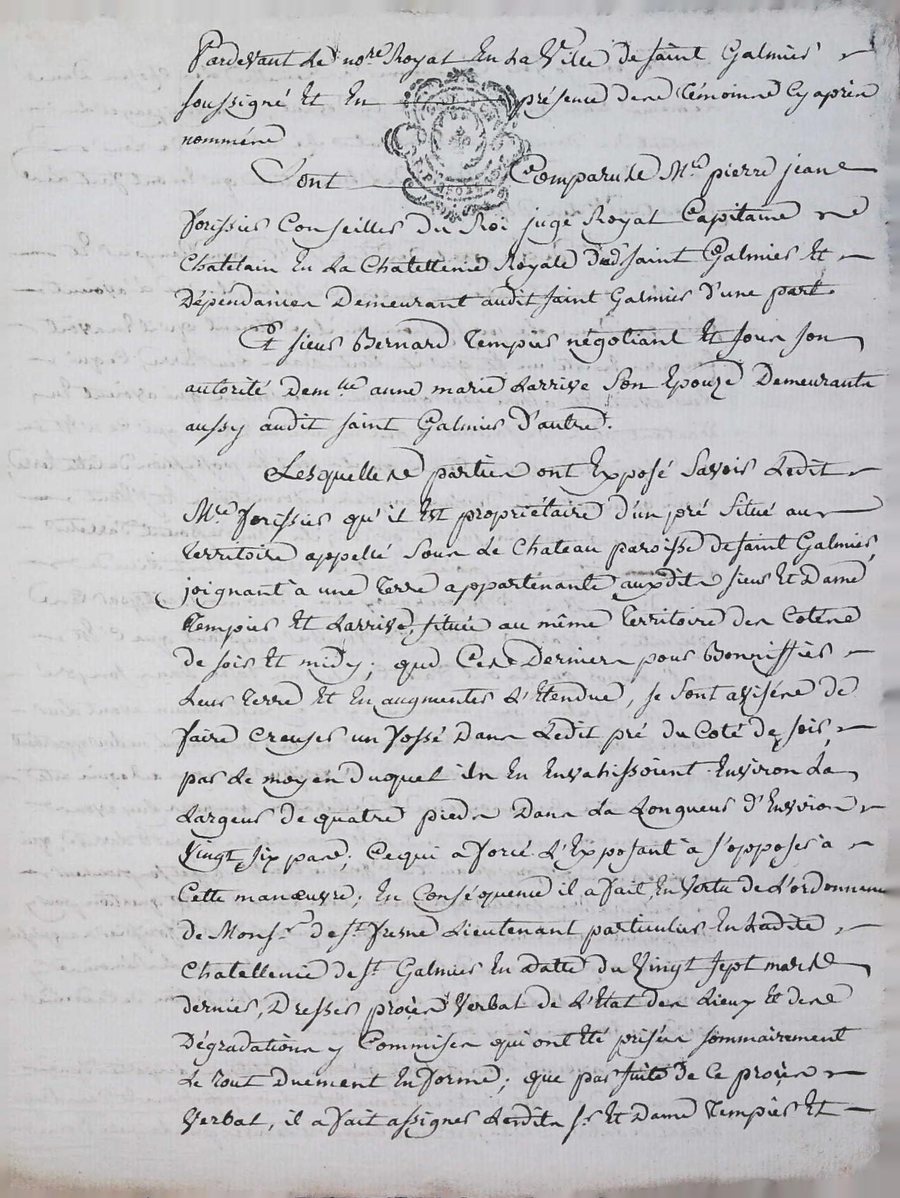 Pardevant Le no.re Royal En La Ville de saint Galmier
soussigné Et En présence des témoins cy après
nommés
Sont Comparus Me. pierre jean
forissier Conseiller du Roi juge Royal Capitaine
Chatelain En La Chatellenie Royale dud. saint Galmier Et
Dépendances Demeurant audit saint Galmier d'une part.
Et sieur Bernard Tempier négotiant Et sous son
autorité Dem.lle anne marie Larrive Son Epouze Demeurants
aussy audit saint Galmier d'autre.
Lesquelles parties ont Exposé Savoir Ledit
Me. forissier qu'il Est propriétaire d'un pré Situé au
territoire appellé Sous Le Chateau paroisse de saint Galmier,
joignant à une terre appartenante auxdits sieur Et Dame
Tempier Et Larrive, située au même territoire des Cotes
de soir Et midy; que Ces Derniers pour Boniffier
Leur terre Et En augmenter L'Etendue, se sont avisés de
faire Creuser un fossé Dans Ledit pré du Coté de soir,
par Le moyen duquel ils En Envahissoient Environ La
Largeur de quatre pieds Dans La Longueur d'Environ
Vingt six pas; Ce qui a forcé L'Exposant à s'opposer à
Cette manœuvre; En Conséquence il a fait, En Vertu de L'ordonnance
de Mons.r de st. fresne Lieutenant particulier En Ladite
Chatellenie de st. Galmier En datte du Vingt sept mars
dernier, Dresser procès Verbal de L'Etat des Lieux Et des
Dégradations y Commises qui ont Eté prisées sommairement
Le tout Duement En forme; que par suite de Ce procès
Verbal, il a fait assigner Lesdits sr. Et Dame Tempier Et